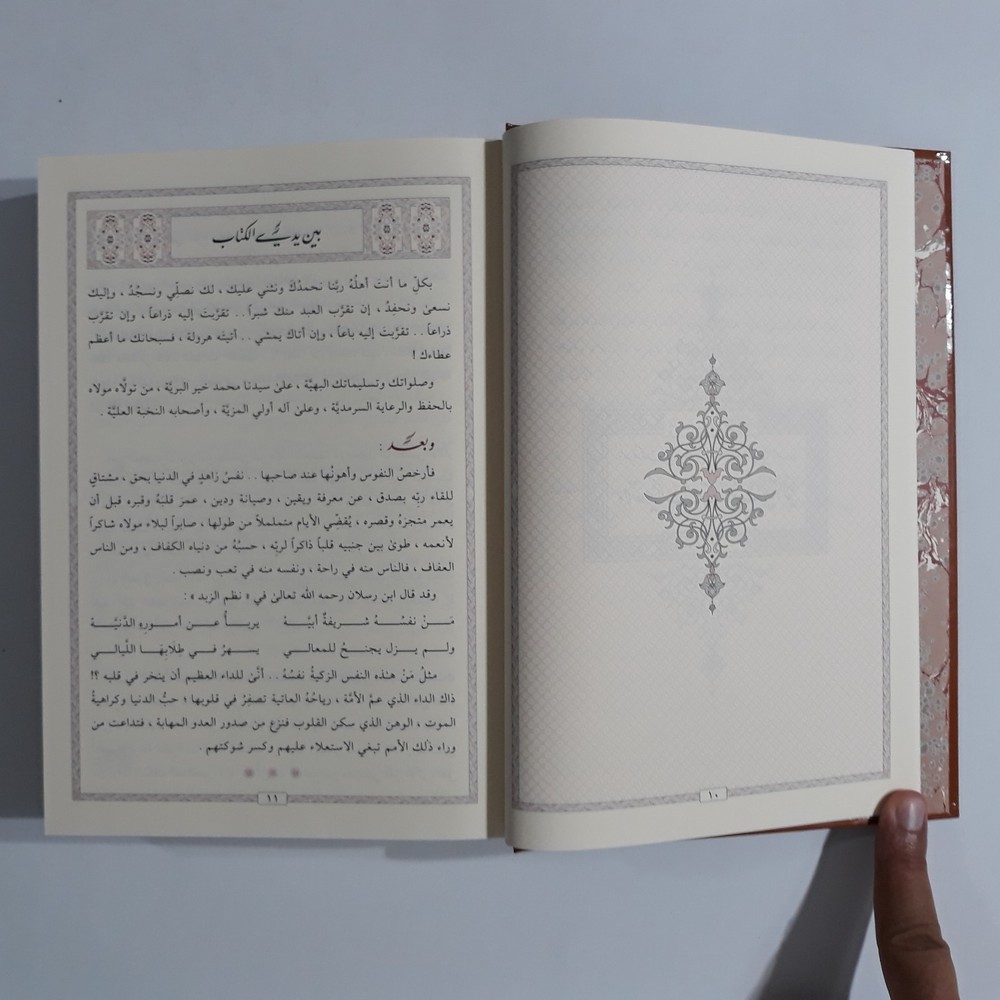 ١٠
بين يدي الكتاب
بكلِّ ما أنتَ أهلُهُ ربَّنا نحمدُكَ ونثني عليك ، لك نصلّي ونسجُدُ ، وإليك
نسعىٰ ونحفِدُ ، إن تقرَّب العبد منك شبراً . . تقرَّبتَ إليه ذراعاً ، وإن تقرَّب
ذراعاً . . تقرَّبتَ إليه باعاً ، وإن أتاك يمشي . . أتيتَه هرولة ، فسبحانك ما أعظم
عطاءك !
وصلواتك وتسليماتك البهيَّة ، علىٰ سيدنا محمد خير البريَّة ، من تولَّاه مولاه
بالحفظ والرعاية السرمديَّة ، وعلىٰ آله أولي المزيَّة ، وأصحابه النخبة العليَّة .
وبعد :
فأرخصُ النفوس وأهونُها عند صاحبها . . نفسٌ زاهدٍ في الدنيا بحق ، مشتاقٍ
للقاء ربِّه بصدق ، عن معرفة ويقين ، وصيانة ودين ، عمرَ قلبَهُ وقبره قبل أن
يعمر متجرَهُ وقصره ، يُقضّي الأيام متململاً من طولها ، صابراً لبلاء مولاه شاكراً
لأنعمه ، طوىٰ بين جنبيه قلباً ذاكراً لربِّه ، حسبُهُ من دنياه الكفاف ، ومن الناس
العفاف ، فالناس منه في راحة ، ونفسه منه في تعب ونصب .
وقد قال ابن رسلان رحمه الله تعالىٰ في « نظم الزبد » :
مَـنْ نفسُـهُ شـريفةٌ أبيَّـهْ يربـأُ عـن أمـورِهِ الدَّنيَّـهْ
ولـم يـزل يجنحُ للمعالـي يسهرُ فـي طِلَابِهَـا اللَّيالـي
مثلُ مَنْ هـٰذه النفس الزكيةُ نفسُهُ . . أنَّىٰ للداء العظيم أن ينخر في قلبه ؟!
ذاك الداء الذي عمَّ الأمَّة ، رياحُهُ العاتية تصفِرُ في قلوبها ؛ حبُّ الدنيا وكراهيةُ
الموت ، الوهن الذي سكن القلوب فنزع من صدور العدو المهابة ، فتداعت من
وراء ذٰلك الأمم تبغي الاستعلاء عليهم وكسر شوكتهم .
١١